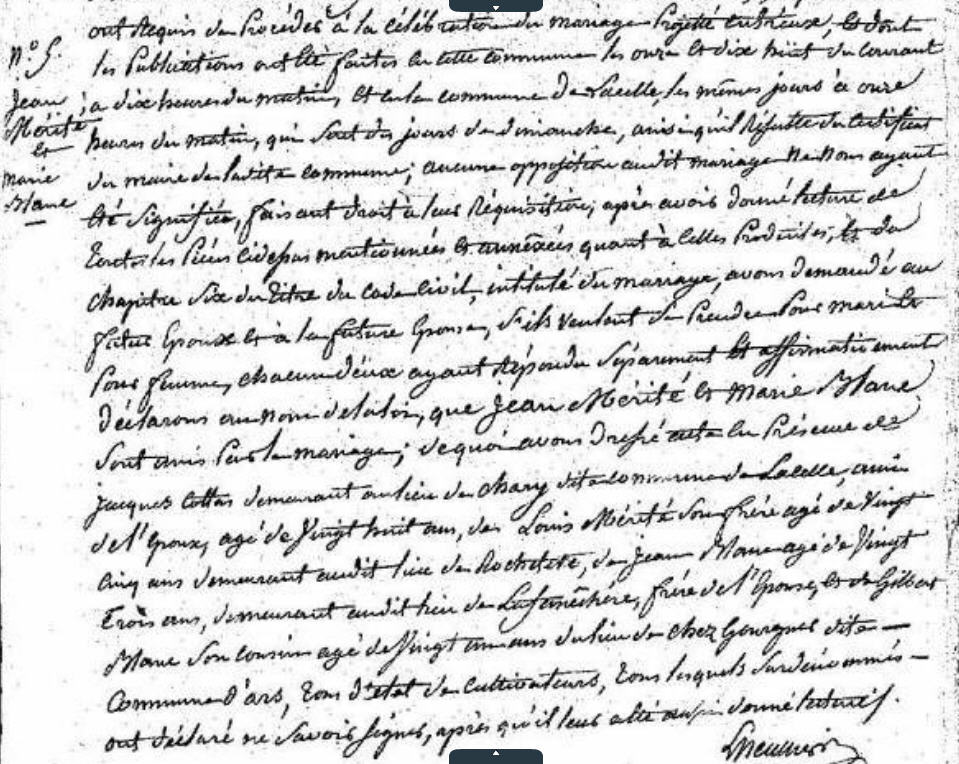 n.° 5.
Jean
Mérité
et
marie
Mane
ont Requis de Procéder à la célébration du mariage Projetté entr'eux, et dont
les Publications ont été faites en cette commune les onze et dix huit du courant
à dix heures du matin, et en la commune de Lacelle, les mêmes jours à onze
heures du matin, qui sont des jours de dimanche, ainsi qu'il Résulte du Certificat
du maire de ladite commune; aucune opposition audit mariage ne nous ayant
été Signifiée, faisant droit à leur Réquisition, après avoir donné lecture de
Toutes les Pièces cidessus mentionnées et annéxées quant à celles Produites, et du
chapitre Six du Titre du Code Civil, intitulé du mariage, avons demandé au
futur Epoux et à la future Epouse, s'ils veulent se Prendre Pour mari et
Pour femme, chacun d'eux ayant Répondu Séparement et affirmativement
déclarons au nom de la loi, que Jean Mérité et Marie Mane
sont unis Par le mariage; de quoi avons dressé acte en Présence de
Jacques Cottas demeurant au lieu de chary dite commune de Lacelle, ami
de l'Epoux, agé de Vingt huit ans, de Louis Mérité Son frère agé de Vingt
Cinq ans demeurant audit lieu de, de Jean Mane agé de Vingt
Trois ans, demeurant audit lieu de, frère de l'Epouse, et de Gilbert
Mane Son cousin agé de Vingt ans du lieu de chez dite
Commune d'ars, tous d'état de Cultivateurs, tous lesquels Surdénommés
ont déclaré ne Savoir Signer, après qu'il leur a été aussi donné lecture.